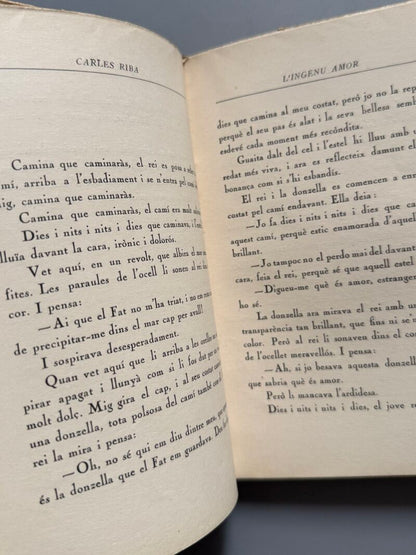 CARLES RIBA
Camina que caminaràs, el rei es posa a
camí, arriba a l'esbadiament i se n'entra pel
mig, camina que caminaràs.
Camina que caminaràs, el camí era molt
Dies i nits i nits i dies que caminava, i
lluïa davant la cara, irònic i dolorós.
Vet aquí, en un revolt, que albira del
fites. Les paraules de l'ocell li sonen al
cor. I pensa:
—Ai que el Fat no m'ha triat, i no
de precipitar-me dins el mar cap per avall!
I sospirava desesperadament.
Quan vet aquí que li arriba a les orelles
pirar apagat i llunyà com si li fos dut per
molt dolç. Mig gira el cap, i al seu costat
una donzella, tota polsosa del camí també com
rei la mira i pensa:
—Oh, no sé qui em diu dintre meu, que
és la donzella que el Fat em guardava. Des
L'INGENU AMOR
dies que camina al meu costat, però jo no la
perquè el seu pas és alat i la seva bellesa
esdevé cada moment més recòndita.
Guaita dalt del cel i l'estel hi lluu amb
redat més viva, i ara es reflecteix damunt el
bonança com si s'hi esbandís.
El rei i la donzella es comencen a
costat pel camí endavant. Ella deia:
—Jo fa dies i nits i nits i dies que
aquest camí, perquè estic enamorada d'aquell
brillant.
—Jo tampoc no el perdo mai del davant
cara, feia el rei, perquè sé que aquell estel
—Digueu-me què és amor,
ho sé.
La donzella ara mirava el rei amb
transparència tan brillant, que fins ni se'n
color. Però al rei li sonaven dins el
de l'ocellet meravellós. I pensa:
—Ah, si jo besava aquesta donzella
que sabria què és amor.
Però li mancava l'ardidesa.
Dies i nits i nits i dies, el jove